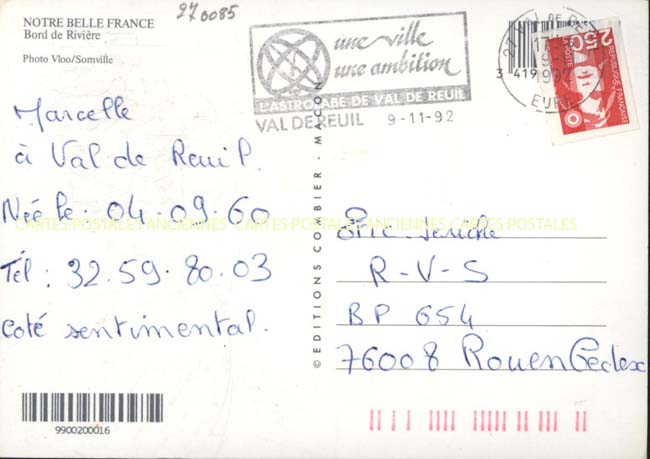 NOTRE BELLE FRANCE
Bord de Rivière
Photo Vloo/Somville
270085
une ville
une ambition
L'ASTROLABE DE VAL DE REUIL
VAL DE REUIL 9-11-92
3 419
2,50
POSTE
REPUBLIQUE FRANÇAISE
Marcelle
à Val de Reuil.
Née le: 04.09.60
Tél: 32.59.80.03
Coté sentimental.
CARTES POSTALES ANCIENNES CARTES POSTALES ANCIENNES CARTES POSTALES
© EDITIONS COMBIER - MACON
Eric
R-V-S
BP 654
76008 Rouen Cedex
9900200016